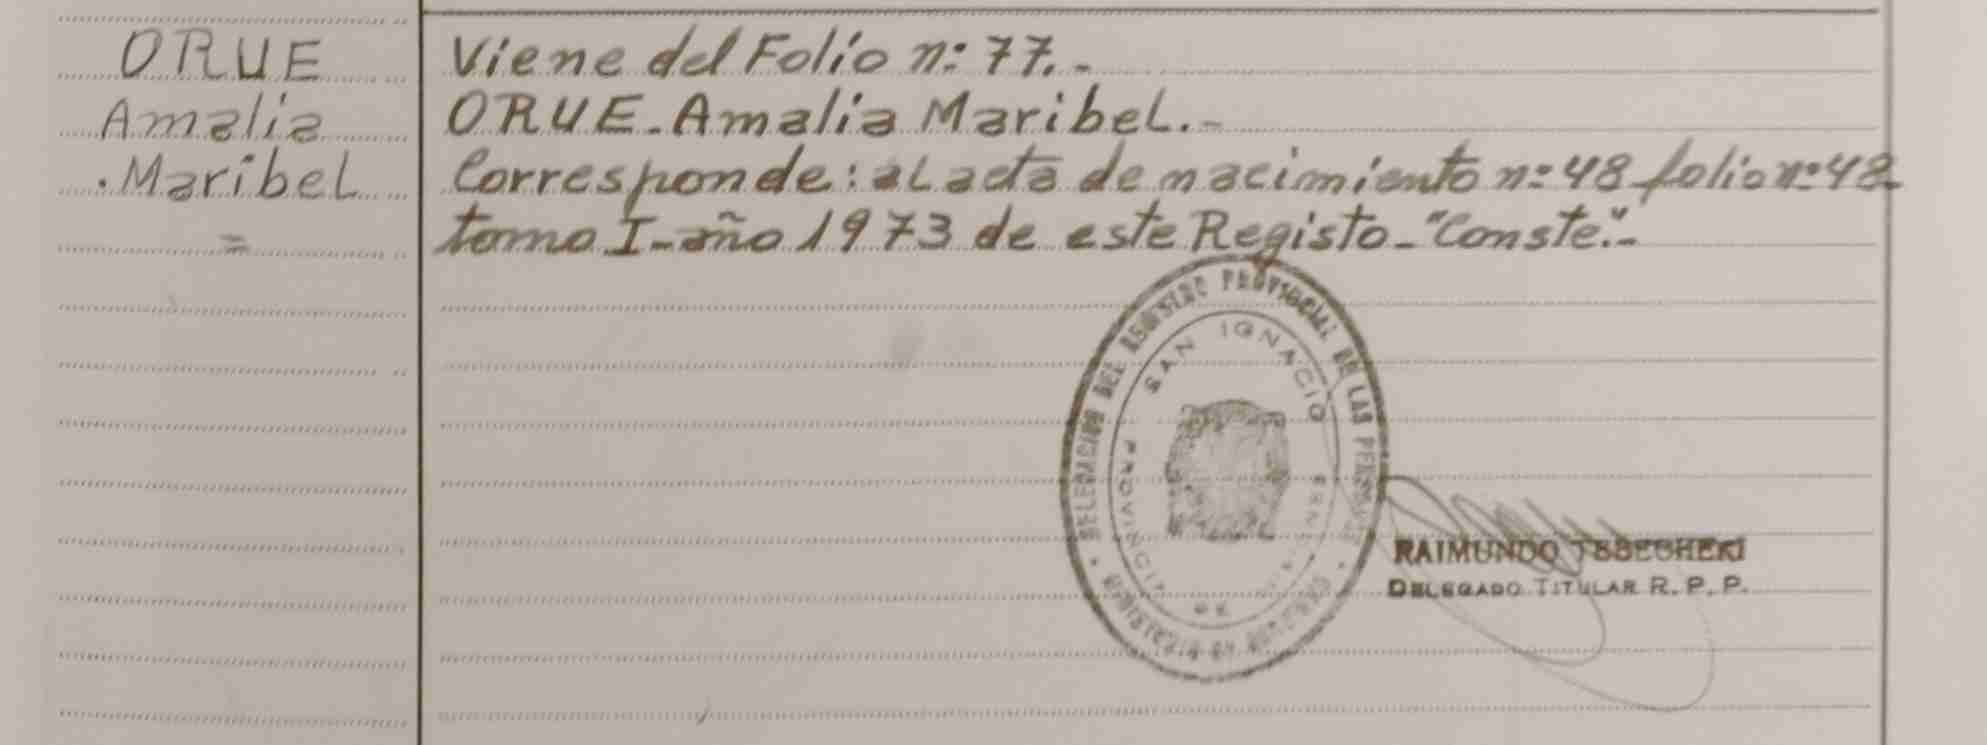 ORUE
Amalia
.Maribel
=
Viene del Folio n: 77.-
ORUE-Amalia Maribel.-
Corresponde: al acta de nacimiento nº 48 folio nº 48
tomo I-año 1973 de este Registo-"Conste."-
DELEGACION DEL REGISTRO PROVINCIAL DE LAS PERSONAS
SAN IGNACIO
PROVINCIA DE
RAIMUNDO
DELEGADO TITULAR R. P. P.